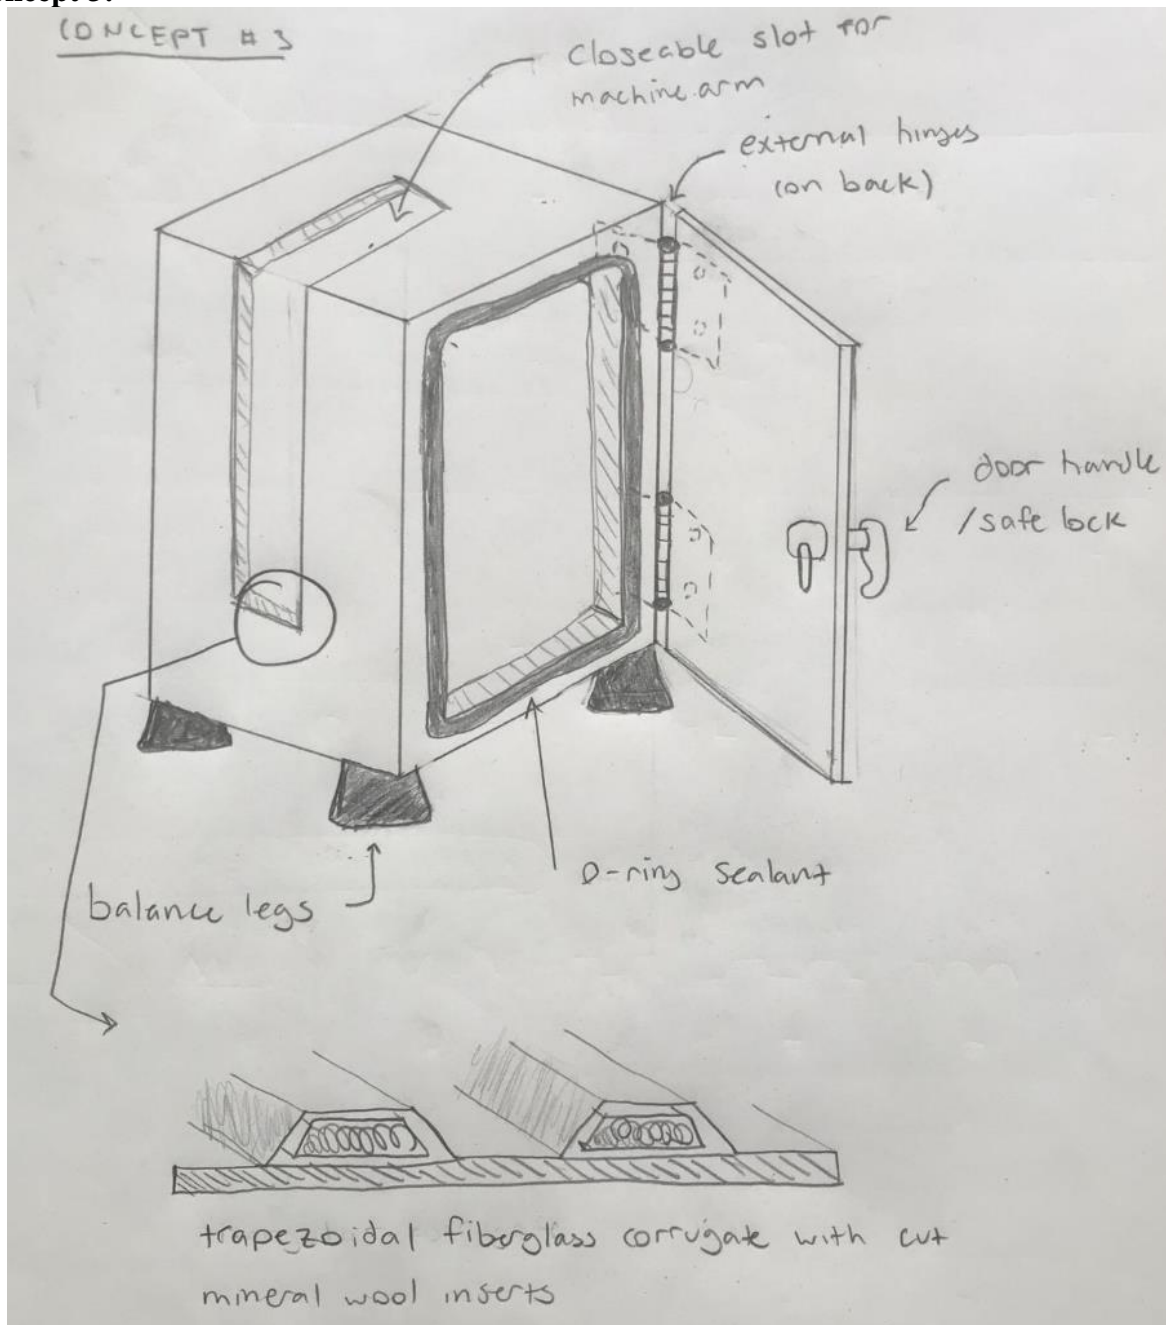 CONCEPT # 3
closeable slot for
machine arm
external hinges
(on back)
door handle
/safe lock
O-ring sealant
balance legs
trapezoidal fiberglass corrugate with cut
mineral wool inserts